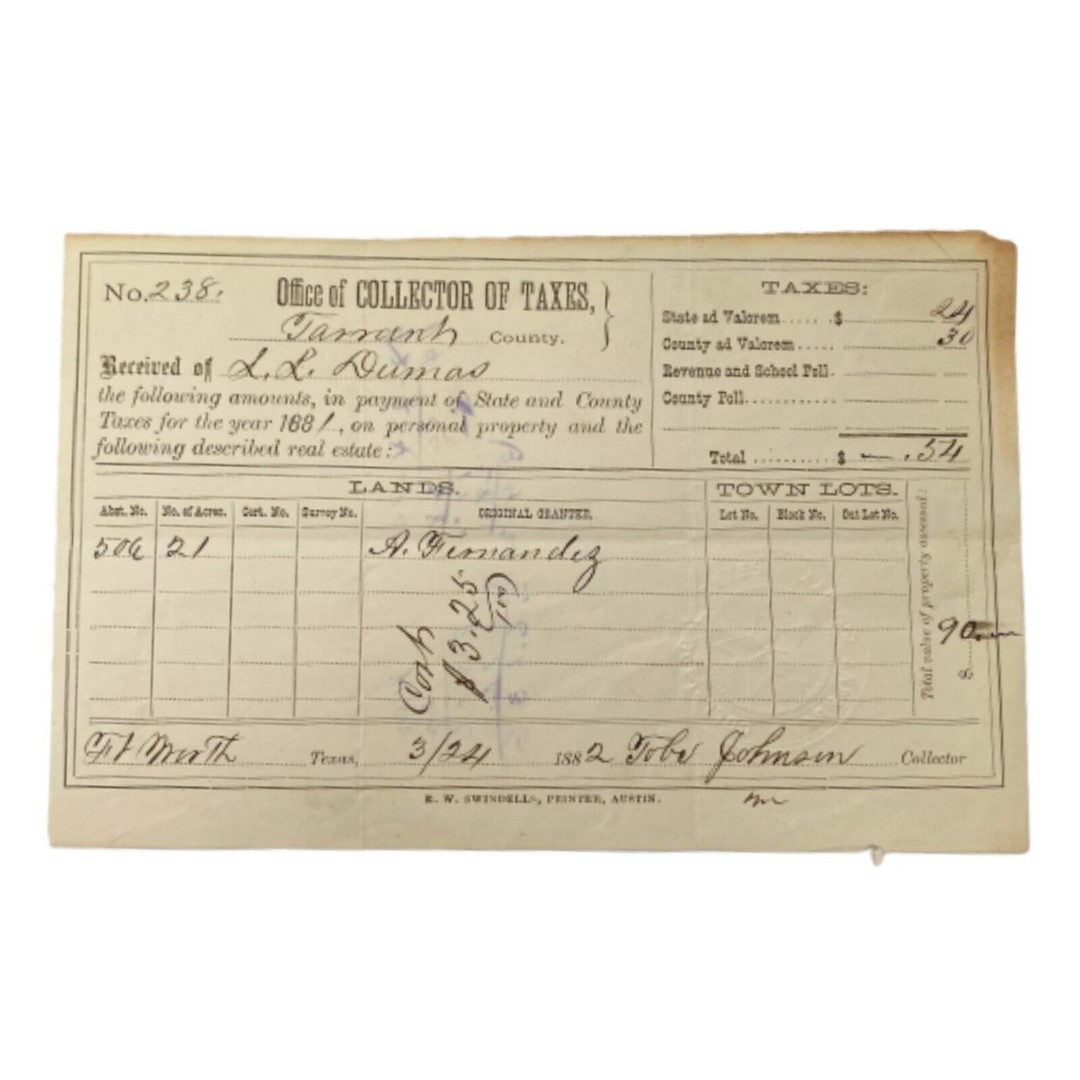 No. 238.
Office of COLLECTOR OF TAXES,
Tarrant County.
Received of L. L. Dumas
the following amounts, in payment of State and County
Taxes for the year 1881, on personal property and the
following described real estate:
TAXES:
State ad Valorem ..... $ 24
County ad Valorem ..... 30
Revenue and School Poll.
County Poll............
Total .......... $ — .54
LANDS.
TOWN LOTS.
Abst. No. No. of Acres. Cert. No. Survey No. ORIGINAL GRANTEE. Lot No. Block No. Out Lot No.
506 21 A. Fernandez
Cost
$3.25
Total value of property assessed:
$ 90
Ft Worth Texas, 3/24 1882 Tobe Johnson Collector
E. W. SWINDELLS, PRINTER, AUSTIN.